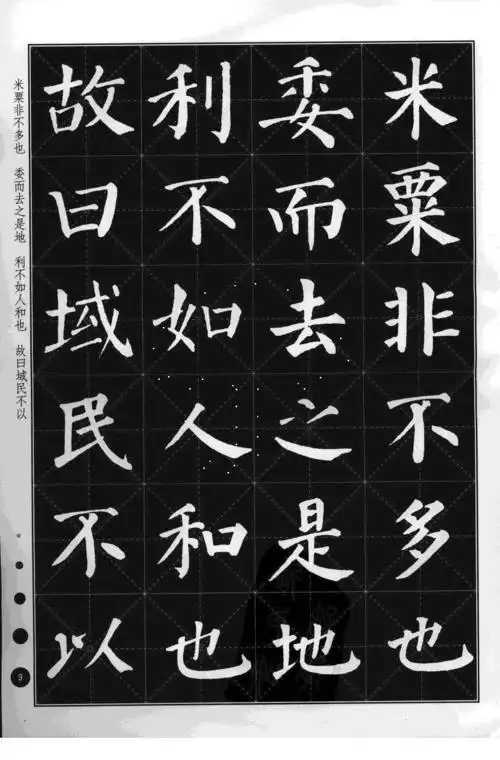 米粟非不多也
委而去之是地
利不如人和也
故曰域民不以
米粟非不多也 委而去之是地 利不如人和也 故曰域民不以
9